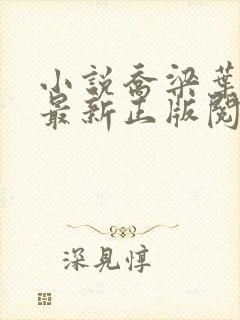 小説喬梁葉
最新正版閱
深見惇